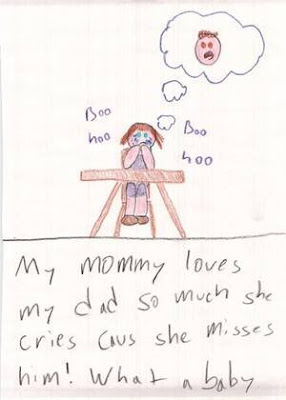 Boo
hoo
Boo
hoo
My mommy loves
my dad so much she
cries caus she misses
him! What a baby